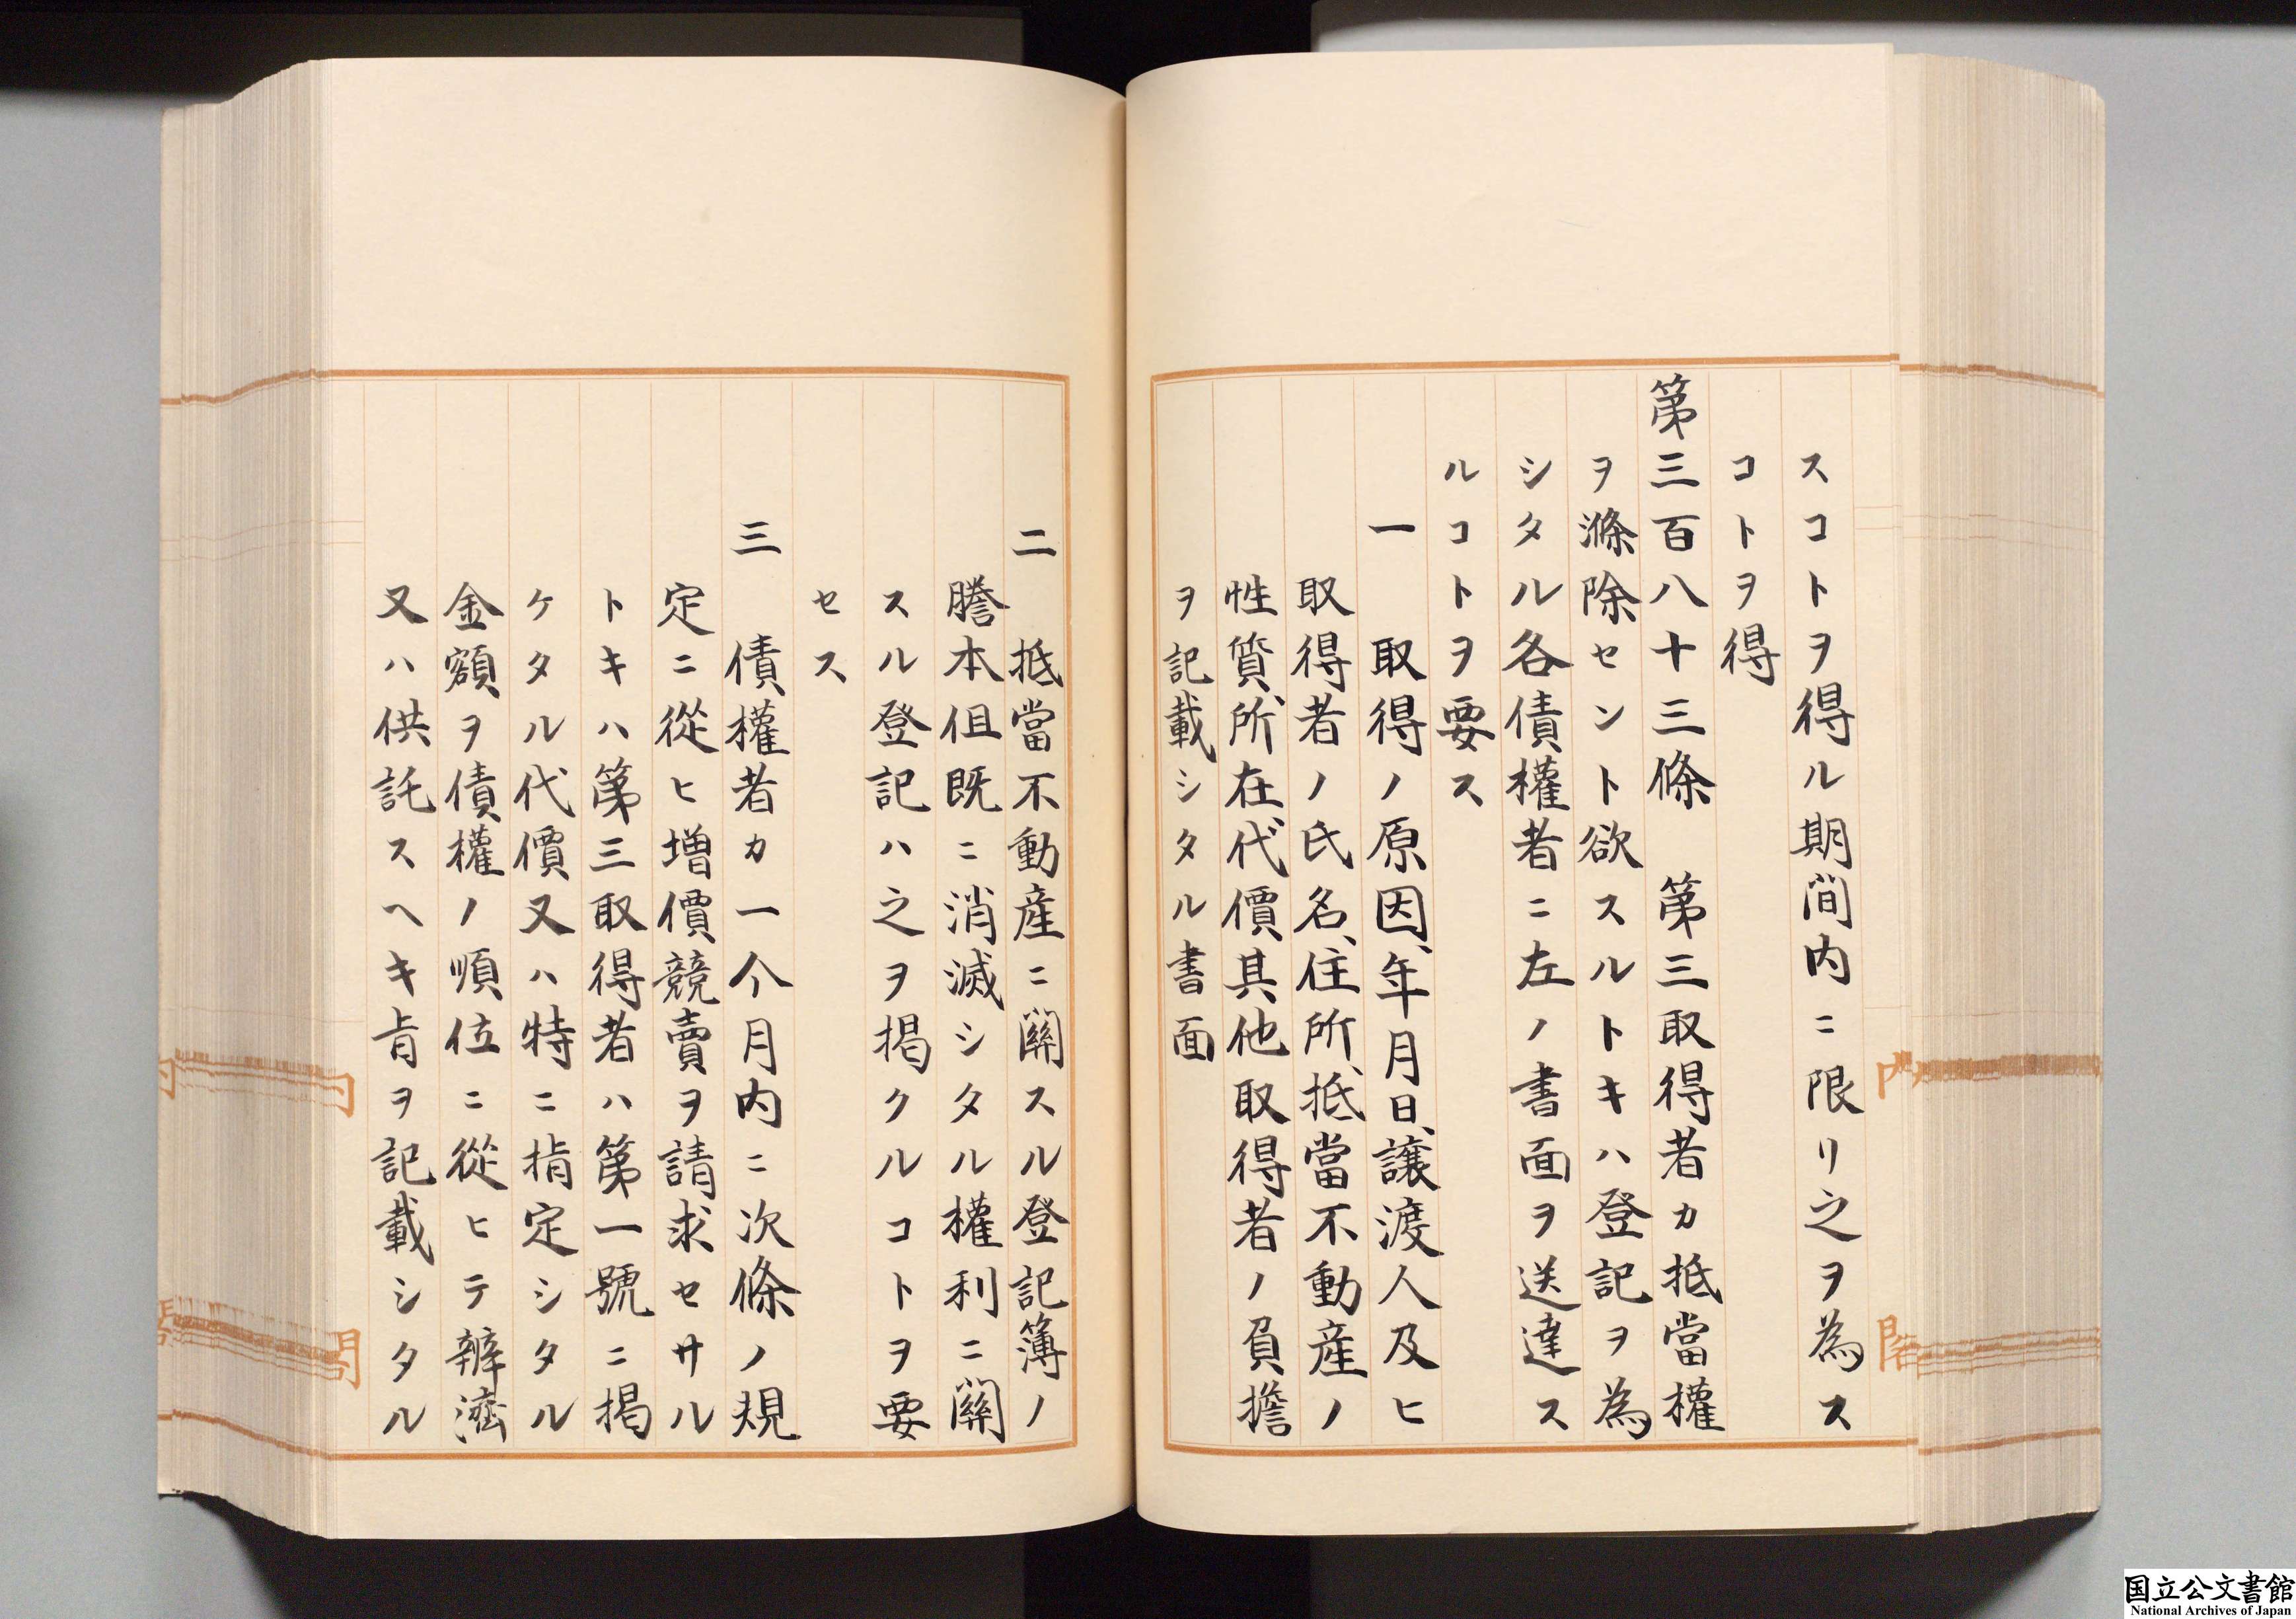 スコトヲ得ル期間内ニ限リ之ヲ為ス
コトヲ得
第三百八十三條　第三取得者カ抵當權
ヲ滌除セント欲スルトキハ登記ヲ為
シタル各債權者ニ左ノ書面ヲ送達ス
ルコトヲ要ス
一　取得ノ原因、年月日、讓渡人及ヒ
取得者ノ氏名、住所、抵當不動產ノ
性質、所在、代價其他取得者ノ負擔
ヲ記載シタル書面
二　抵當不動產ニ關スル登記簿ノ
謄本但既ニ消滅シタル權利ニ關
スル登記ハ之ヲ揭クルコトヲ要
セス
三　債權者カ一个月內ニ次條ノ規
定ニ從ヒ增價競賣ヲ請求セサル
トキハ第三取得者ハ第一號ニ揭
ケタル代價又ハ特ニ指定シタル
金額ヲ債權ノ順位ニ從ヒテ辨濟
又ハ供託スヘキ旨ヲ記載シタル
内
閣
国立公文書館
National Archives of Japan